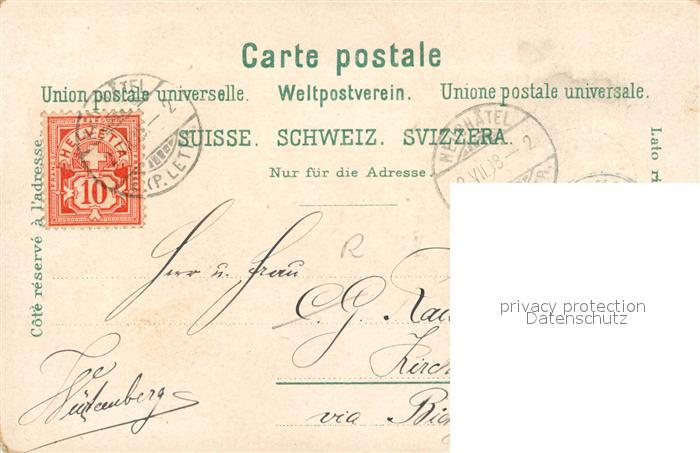 Carte postale
Union postale universelle. Weltpostverein. Unione postale universale.
SUISSE. SCHWEIZ. SVIZZERA.
Nur für die Adresse.
Côté réservé à l'adresse.
Lato ri
FRANCO
HELVETIA
10
NEUCHÂTEL
VII.98.-2
TEL
EXP. LETT
R
Herr u. Frau
C. G.
Kirch
via
Würtemberg
privacy protection
Datenschutz